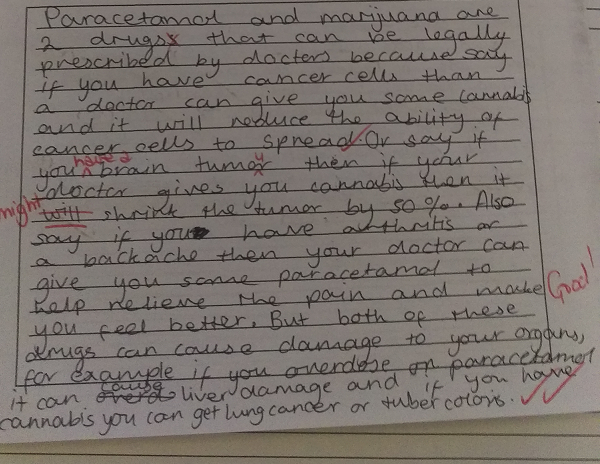 Paracetamol and marijuana are
2 drugs that can be legally
prescribed by doctors because say
if you have cancer cells than
a doctor can give you some cannabis
and it will reduce the ability of
cancer cells to spread. Or say if
you have a brain tumor then if your
doctor gives you cannabis then it
might will shrink the tumor by 50%. Also
say if you have arthritis or
a backache then your doctor can
give you some paracetamol to
help relieve the pain and make Good!
you feel better. But both of these
drugs can cause damage to your organs,
for example if you overdose on paracetamol
it can cause liver damage and if you have
cannabis you can get lung cancer or tuber coloris.